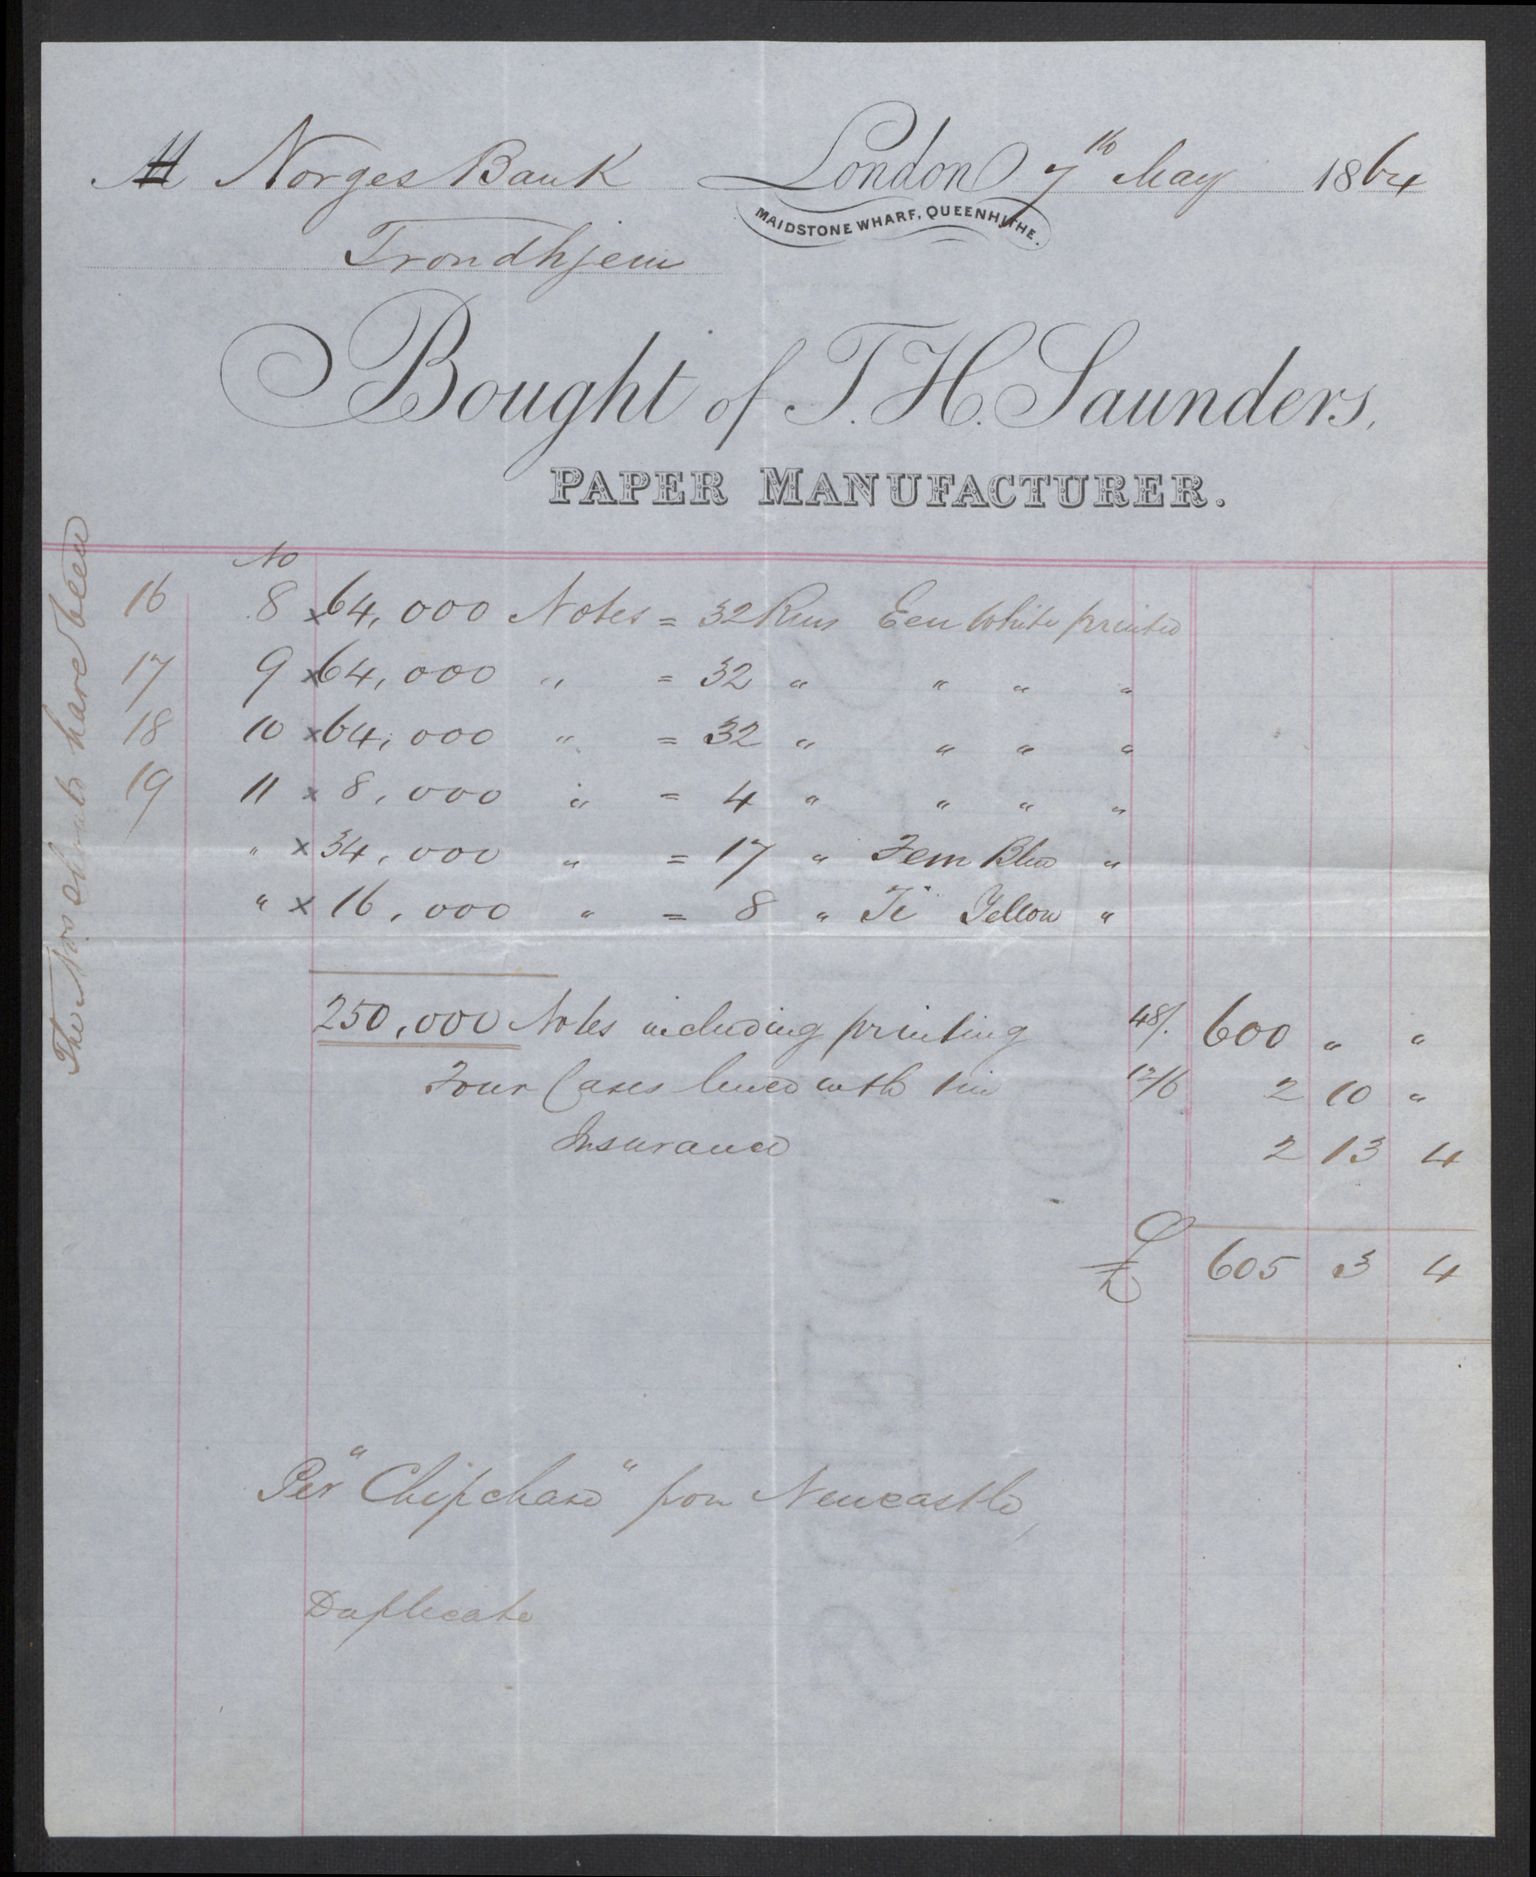 M Norges Bank London 7th May 1864
MAIDSTONE WHARF, QUEENHITHE.
Trondhjem
Bought of T. H. Saunders,
PAPER MANUFACTURER.
No
16 8 x 64,000 Notes = 32 Rms Een White printed
17 9 x 64,000 " = 32 " " " "
18 10 x 64,000 " = 32 " " " "
19 11 x 8,000 " = 4 " " " "
" x 34,000 " = 17 " Fem Blue "
" x 16,000 " = 8 " Ti Yellow "
250,000 Notes including printing 48/. 600 " "
Four Cases lined with tin 12/6 2 10 "
Insurance 2 13 4
£ 605 3 4
Per "Chipchase" from Newcastle,
Duplicate
The Nos should have been